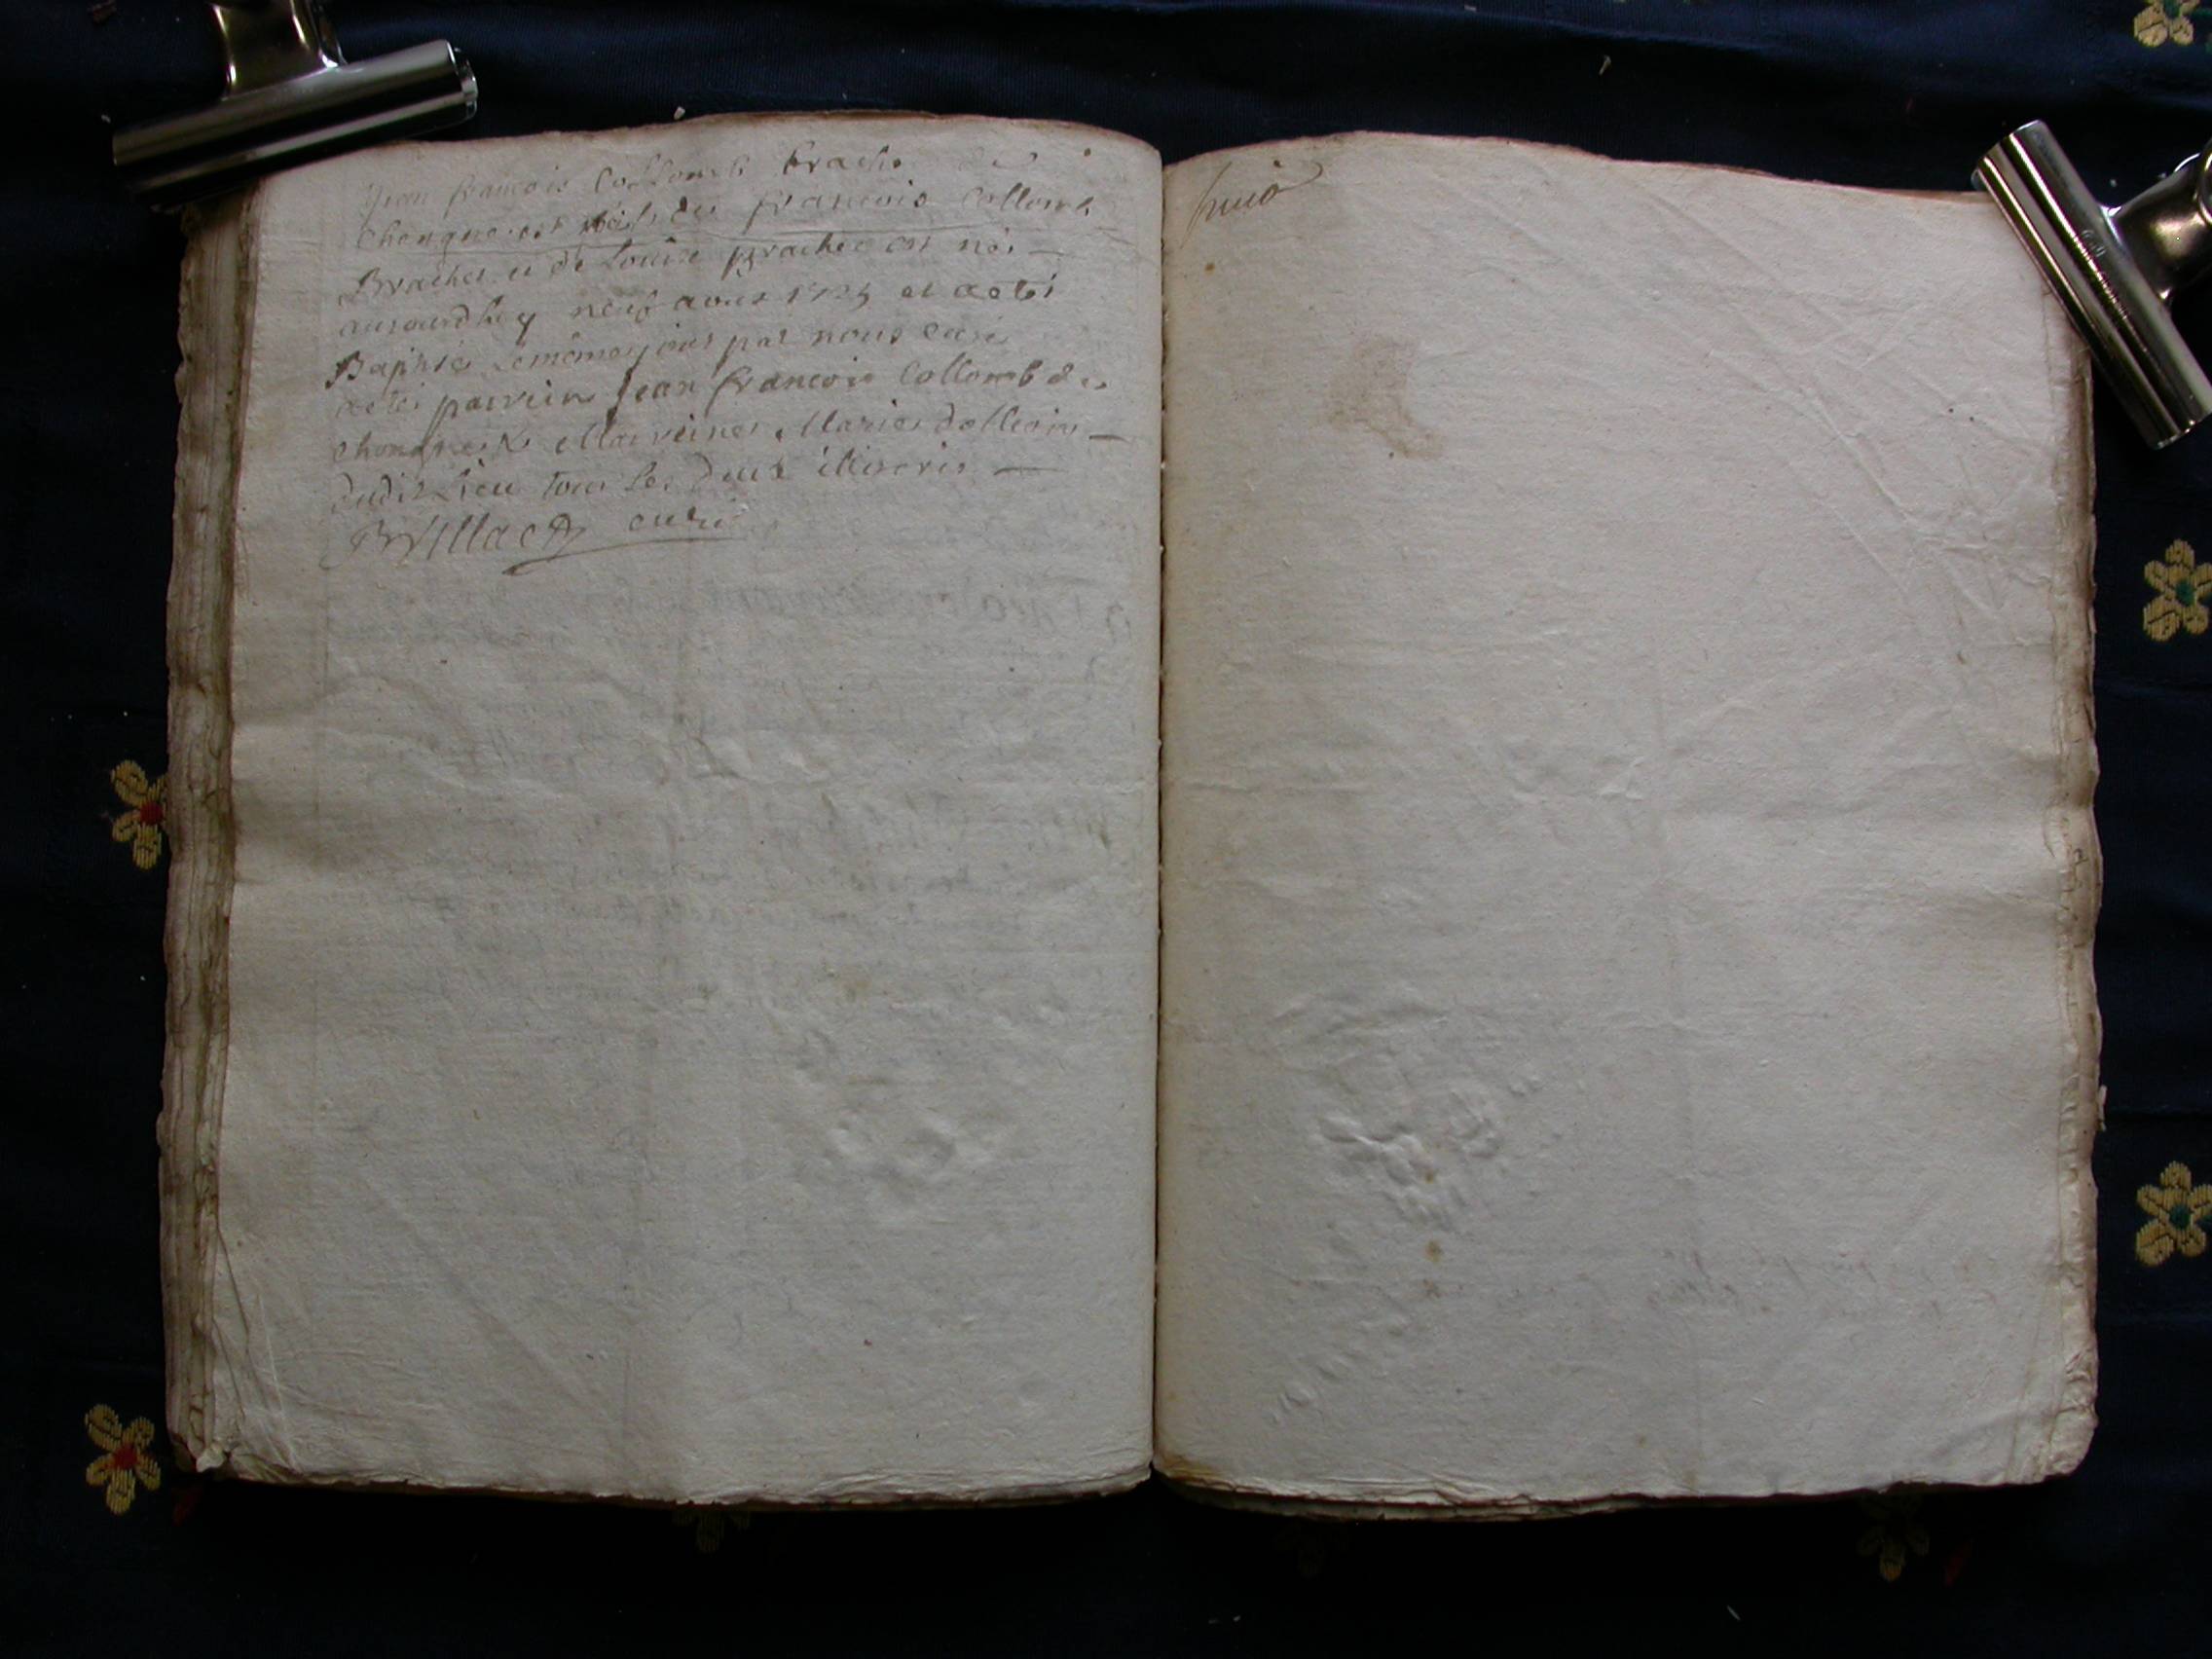 Jean francois Collomb brache de
chongne est fils de francois Collomb
Brachet et de Louise prachet est né
aujourdhuy neuf aout 1725 et a eté
Baptisé le même jour par nous curé
a eté parrein Jean francois Collomb de
chongne & Marreine Marie
dudit Lieu tous les deux illiteris
curé